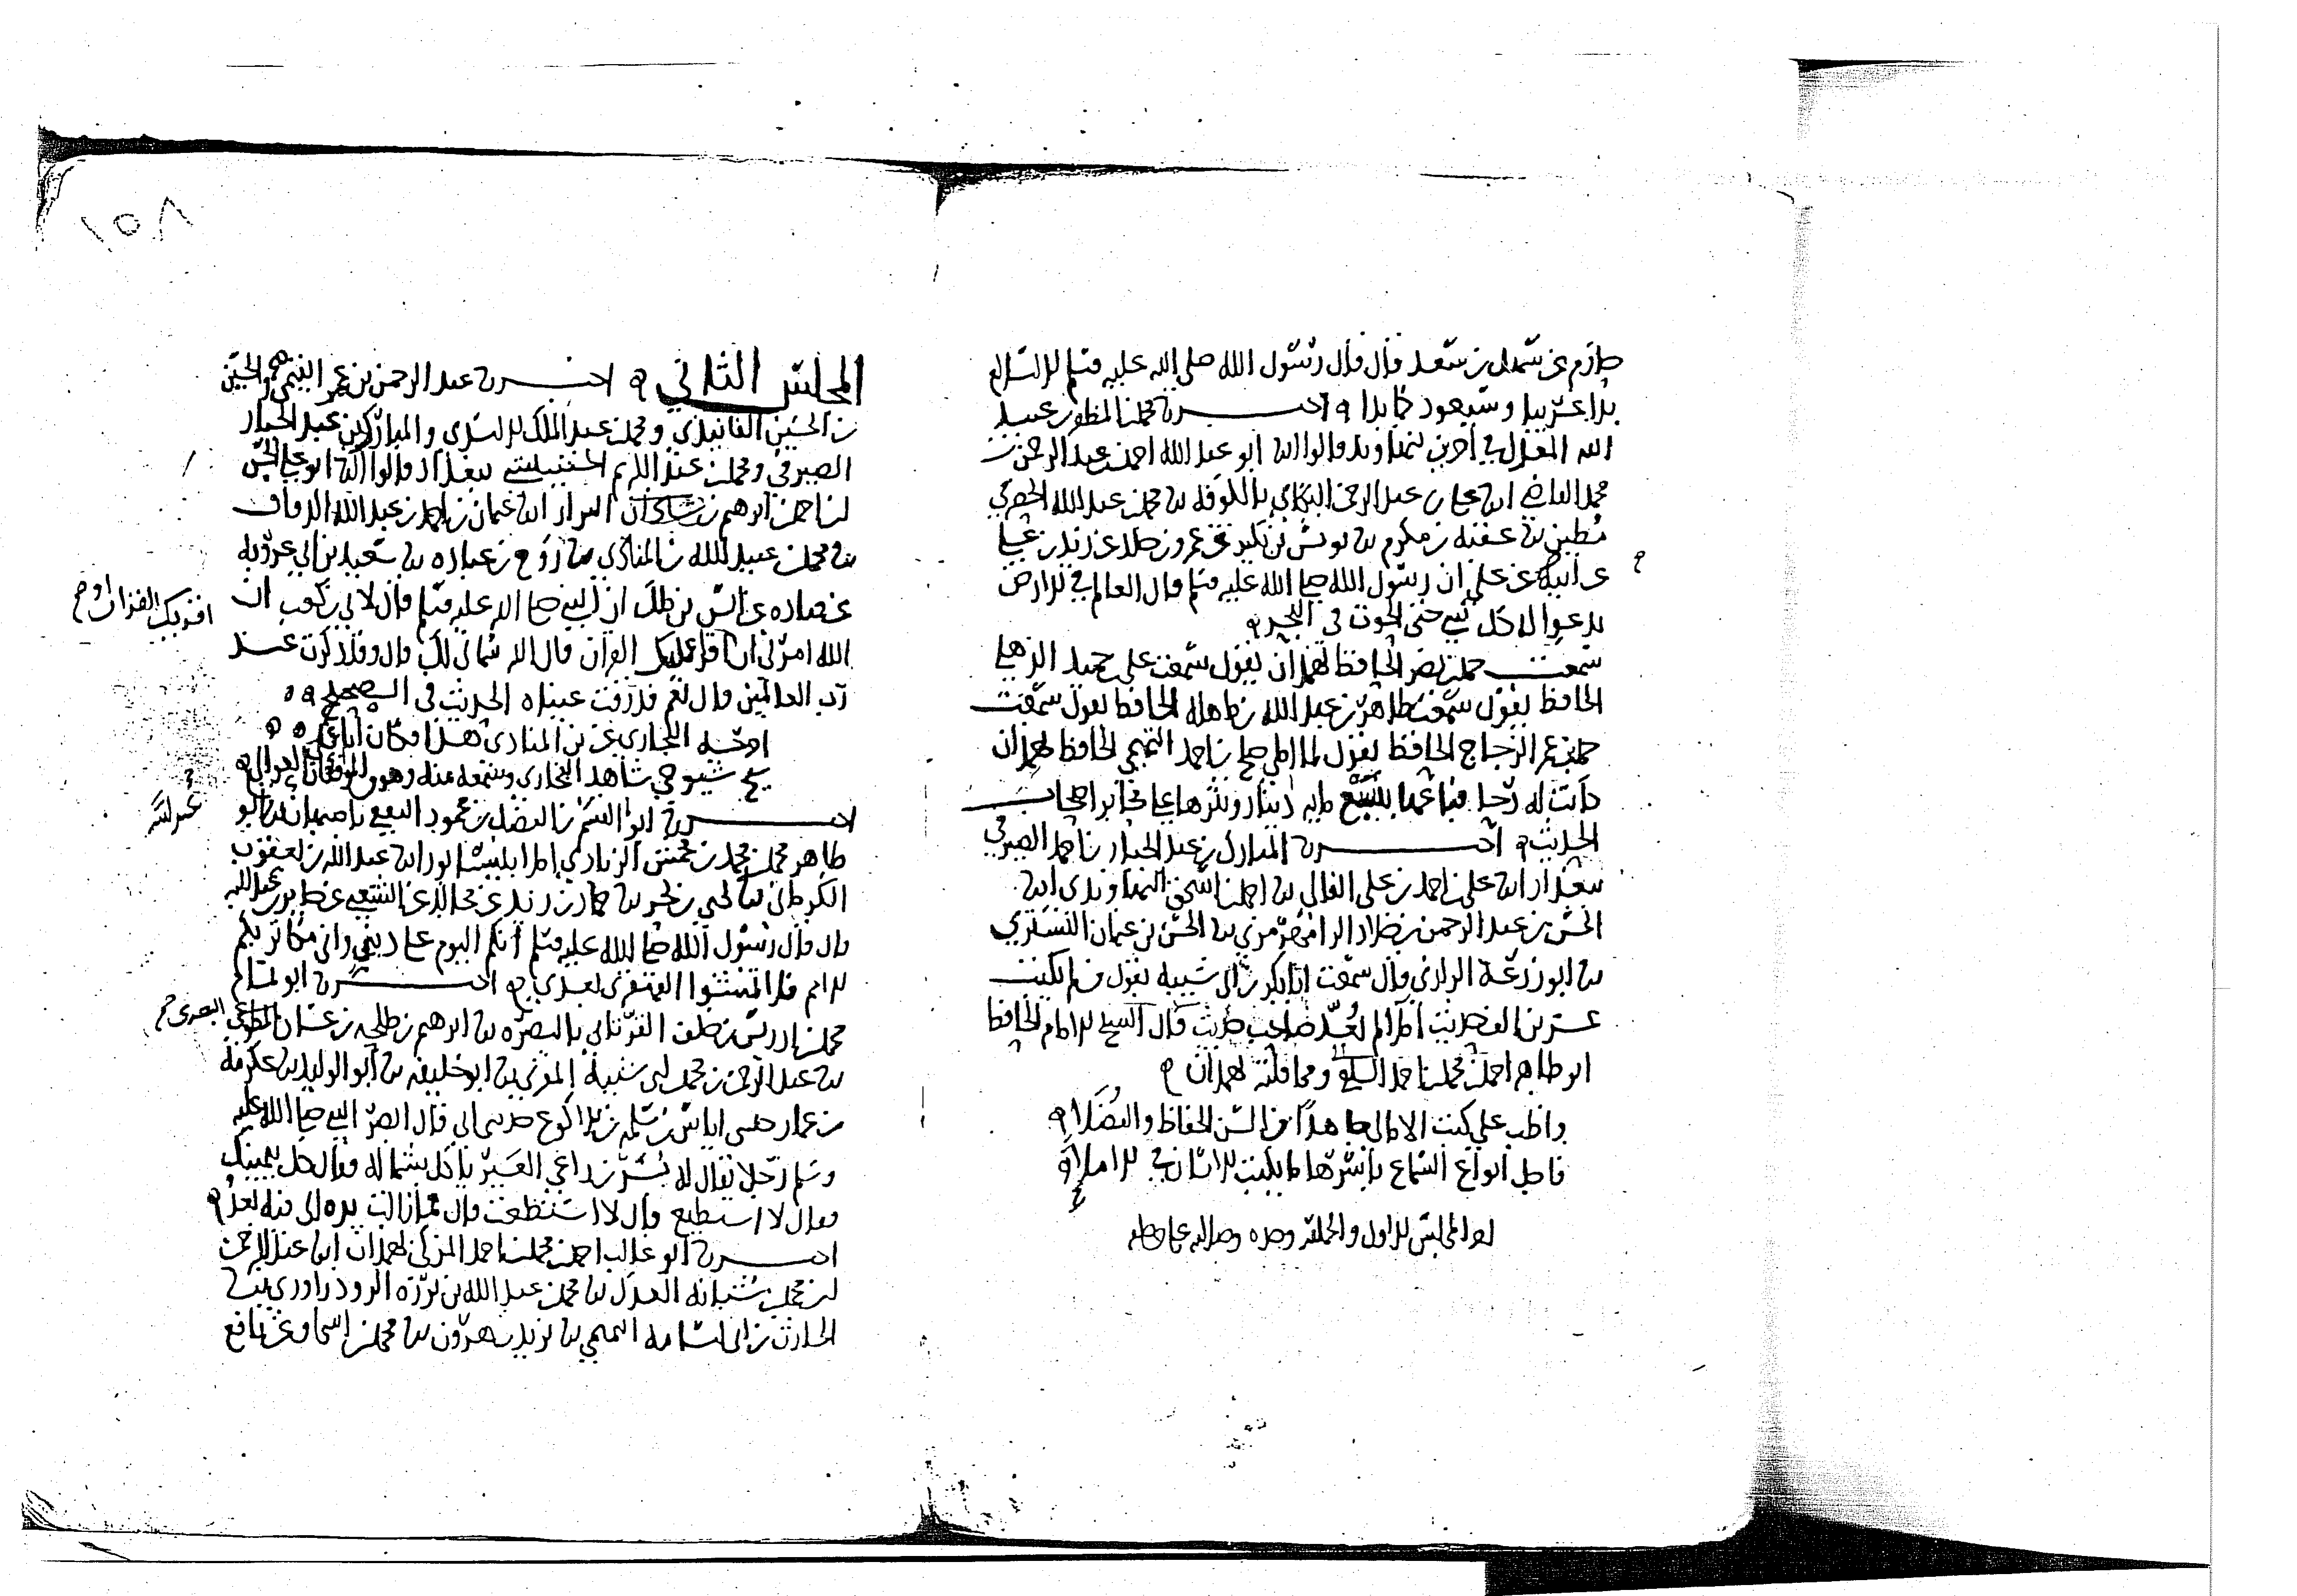 حازم عن سهل بن سعد قال قال رسول الله صلى الله عليه وسلم الاسلام
بدا غريبا وسيعود كما بدا اخبرنا محمد المظفر عبيد
الله المعدل في آخرين بنهاوند قالوا انا ابو عبد الله احمد بن عبد الرحمن بن
محمد القاضي انا علي بن عبد الرحمن البكائي بالكوفة نا محمد بن عبد الله الحضرمي
مطين نا عقبة بن مكرم نا يونس بن بكير عن عمرو بن خلد عن زيد بن علي
عن ابيه عن علي ان رسول الله صلى الله عليه وسلم قال العالم في الارض
يدعوا له كل شيء حتى الحوت في البحر
سمعت حمد بن نصر الحافظ بهمذان يقول سمعت علي حميد الذهلي
الحافظ يقول سمعت طاهر بن عبد الله بن ماهله الحافظ يقول سمعت
حمد بن عمر الزجاج الحافظ يقول لما املى صالح بن احمد التميمي الحافظ بهمذان
كانت له رحا فباعها بسبع مايه دينار ونثرها على محابر اصحاب
الحديث اخبرنا المبارك بن عبد الجبار بن احمد الصيرفي
ببغداد انا علي بن احمد بن علي الفالي نا احمد بن اسحق النهاوندي انا
الحسن بن عبد الرحمن بن خلاد الرامهرمزي نا الحسن بن عثمان التستري
نا ابو زرعة الرازي قال سمعت ابا بكر بن ابي شيبة يقول من لم يكتب
عشرين الف حديث املا لم يعد صاحب حديث قال الشيخ الامام الحافظ
ابو طاهر احمد بن محمد بن احمد السلفي ومما قلته بهمذان
واظب على كتب الامالي جاهدا من السن الحفاظ والفضلا
فاجل انواع السماع باسرها ما يكتب الانسان في الاملا
اخر المجلس الاول والحمد لله وحده وصلواته على
١٥٨
المجلس الثاني اخبرنا عبد الرحمن بن عمر التيمي والحسين
بن الحسين الفانيذي ومحمد بن عبد الملك الاسدي والمبارك بن عبد الجبار
الصيرفي ومحمد بن عبد الكريم ببغداد قالوا انا ابو علي الحسن
بن احمد بن ابرهيم بن شاذان البزاز انا عثمان بن احمد بن عبد الله الدقاق
نا محمد بن عبيد الله بن المنادي نا روح بن عباده نا سعيد بن ابي عروبة
عن قتاده عن انس بن ملك ان النبي صلى الله عليه وسلم قال لابي بن كعب ان
الله امرني ان اقرا عليك القران قال الله سماني لك قال وقد ذكرت عند
رب العالمين قال نعم فذرفت عيناه الحديث في الصحيح
اخرجه البخاري عن بن المنادي هذا فكان ابا علي
شيخ شيوخي شاهد البخاري وسمعه منه وهو من الموافقات
اخبرنا ابو القسم بن الفضل بن محمود الثقفي باصبهان نا ابو
طاهر محمد بن محمد بن محمش الزيادي املا بنيسابور انا عبد الله بن يعقوب
الكرماني نا يحيى بن بحر نا حماد بن زيد عن مجالد عن الشعبي عن جابر بن عبد الله
قال قال رسول الله صلى الله عليه وسلم انكم اليوم على دين واني مكاثر بكم
الامم فلا تمشوا القهقرى بعدي اخبرنا ابو تمام
محمد بن ادريس بن خلف القرتائي بالبصرة نا ابرهيم بن طلحة بن غسان المطوعي
نا عبد الرحمن بن محمد بن شيبة المقرئ نا ابو خليفة نا ابو الوليد نا عكرمة
بن عمار حدثني اياس بن سلمة بن الاكوع حدثني ابي قال ابصر النبي صلى الله عليه
وسلم رجلا يقال له بسر بن راعي العير ياكل بشماله فقال كل بيمينك
فقال لا استطيع قال لا استطعت قال فما نالت يده الى فيه بعد
اخبرنا ابو غالب احمد بن محمد بن احمد المزكي بهمذان انا عبد الرحمن
بن محمد بن شبانة العدل نا محمد بن عبد الله بن برزة الروذراوري نا
الحارث بن ابي اسامة التميمي نا يزيد بن هرون نا محمد بن اسحاق عن نافع
اقرئك القران
البصري